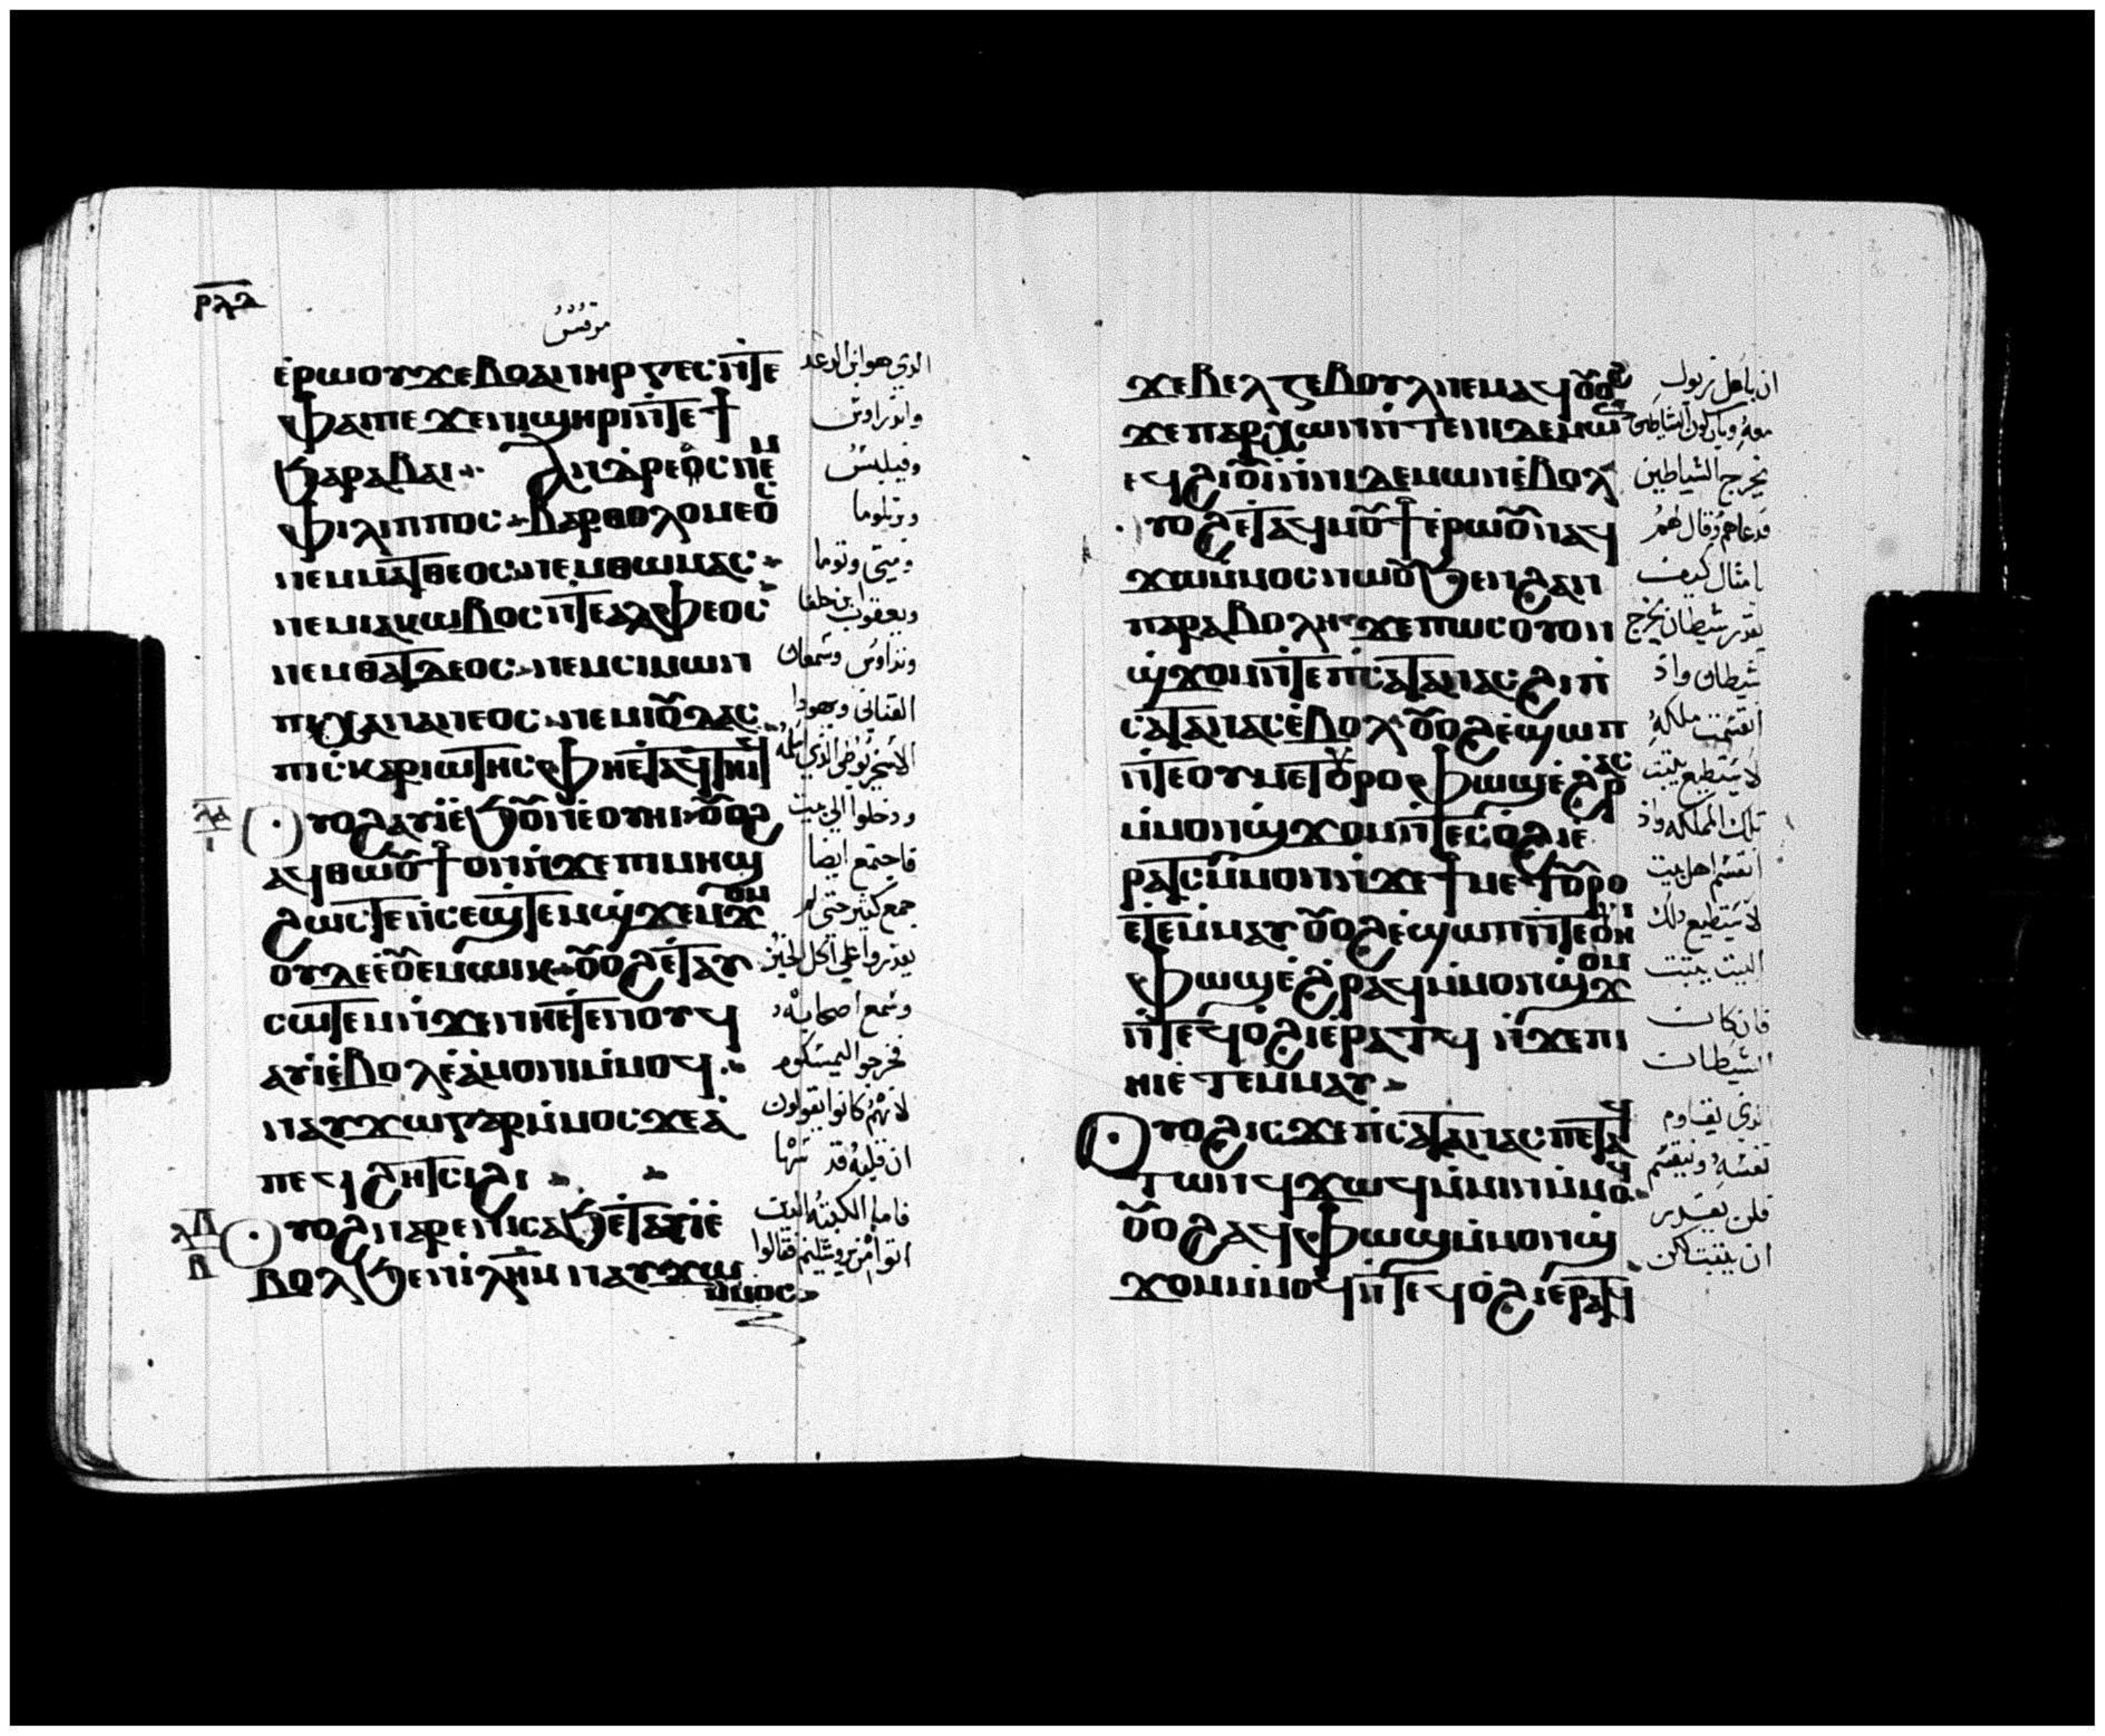 ⲣⲗⲁ
مرقس
ⲉⲣⲱⲟⲩ ϫⲉ ⲃⲟⲁⲛⲏⲣⲅⲉⲥ ⲛⲧⲉ
ⲫⲁⲓ ⲡⲉ ϫⲉ ⲛⲓϣⲏⲣⲓ ⲛⲧⲉ ϯ
ϧⲁⲣⲁⲃⲁⲓ ⲁⲛⲁⲣⲉⲟⲥ ⲛⲉⲙ
ⲫⲓⲗⲓⲡⲡⲟⲥ ⲃⲁⲣⲑⲟⲗⲟⲙⲉⲟⲥ
ⲛⲉⲙ ⲙⲁⲧⲑⲉⲟⲥ ⲛⲉⲙ ⲑⲱⲙⲁⲥ
ⲛⲉⲙ ⲓⲁⲕⲱⲃⲟⲥ ⲛⲧⲉ ⲁⲗⲫⲉⲟⲥ
ⲛⲉⲙ ⲑⲁⲧⲇⲉⲟⲥ ⲛⲉⲙ ⲥⲓⲙⲱⲛ
ⲡⲓⲭⲁⲛⲁⲛⲉⲟⲥ ⲛⲉⲙ ⲓⲟⲩⲇⲁⲥ
ⲡⲓⲥⲕⲁⲣⲓⲱⲧⲏⲥ ⲫⲏⲉⲧⲁϥⲧⲏⲓϥ
ⲗⲁ ⲟⲩⲟϩ ⲁⲩⲓ ⲉϧⲟⲩⲛ ⲉⲟⲩⲏⲓ ⲟⲩⲟϩ
ⲁϥⲑⲱⲟⲩϯ ⲟⲛ ⲛϫⲉ ⲡⲓⲙⲏϣ
ϩⲱⲥⲧⲉ ⲛⲥⲉϣⲧⲉⲙϣϫⲉⲙϫⲟⲙ
ⲟⲩⲇⲉ ⲉⲟⲩⲉⲙ ⲱⲓⲕ ⲟⲩⲟϩ ⲉⲧⲁⲩ
ⲥⲱⲧⲉⲙ ⲛϫⲉ ⲛⲏⲉⲧⲉⲛⲟⲩϥ
ⲁⲩⲓ ⲉⲃⲟⲗ ⲉⲁⲙⲟⲛⲓ ⲙⲙⲟϥ
ⲛⲁⲩϫⲱ ⲅⲁⲣ ⲙⲙⲟⲥ ϫⲉ ⲁ
ⲡⲉϥϩⲏⲧ ⲥⲓϩⲓ
ⲗⲃ ⲃ ⲟⲩⲟϩ ⲛⲁⲣⲉ ⲛⲓⲥⲁϧ ⲉⲧⲁⲩⲓ ⲉ
ⲃⲟⲗϧⲉⲛ ⲓⲗⲏⲙ ⲛⲁⲩϫⲱ
ⲙⲙⲟⲥ
الذي هو ابن الرعد
واندراوس
وفيلبس
وبرتلوما
ومتى وتوما
ويعقوب ابن حلفا
وتداوس وسمعان
القناني ويهودا
الاسخريوطي الذي اسلمه
ودخلوا الى بيت
فاجتمع ايضا
جمع كثير حتى لم
يقدروا على اكل الخبز
وسمع اصحابه
فخرجوا ليمسكوه
لانهم كانوا يقولون
ان قلبه قد سها
فاما الكتبه الذين
اتوا من يروشليم فقالوا
ϫⲉ ⲃⲉⲗⲍⲉⲃⲟⲩⲗ ⲛⲉⲙⲁϥ ⲟⲩⲟϩ
ϫⲉ ⲡⲁⲣⲭⲱⲛ ⲛⲧⲉ ⲛⲓⲇⲉⲙⲱⲛ
ⲉϥϩⲓⲟⲩⲓ ⲛⲛⲓⲇⲉⲙⲱⲛ ⲉⲃⲟⲗ
ⲟⲩⲟϩ ⲉⲧⲁϥⲙⲟⲩϯ ⲉⲣⲱⲟⲩ ⲛⲁϥ
ϫⲱ ⲙⲙⲟⲥ ⲛⲱⲟⲩ ϧⲉⲛ ϩⲁⲛ
ⲡⲁⲣⲁⲃⲟⲗⲏ ϫⲉ ⲡⲱⲥ ⲟⲩⲟⲛ
ϣϫⲟⲙ ⲛⲧⲉ ⲡⲥⲁⲧⲁⲛⲁⲥ ϩⲓ ⲡ
ⲥⲁⲧⲁⲛⲁⲥ ⲉⲃⲟⲗ ⲟⲩⲟϩ ⲉϣⲱⲡ
ⲛⲧⲉ ⲟⲩⲙⲉⲧⲟⲩⲣⲟ ⲫⲱϣ ⲉϩⲣⲁⲥ
ⲙⲙⲟⲛ ϣϫⲟⲙ ⲛⲧⲉⲥⲟϩⲓ ⲉ
ⲣⲁⲧⲥ ⲙⲙⲟⲛ ⲛϫⲉ ϯⲙⲉⲧⲟⲩⲣⲟ
ⲉⲧⲉⲙⲙⲁⲩ ⲟⲩⲟϩ ⲉϣⲱⲡ ⲛⲧⲉ ⲟⲩⲏⲓ
ⲫⲱϣ ⲉϩⲣⲁϥ ⲙⲙⲟⲛ ϣϫⲟⲙ
ⲛⲧⲉϥⲟϩⲓ ⲉⲣⲁⲧϥ ⲛϫⲉ ⲡⲓ
ⲏⲓ ⲉⲧⲉⲙⲙⲁⲩ
ⲟⲩⲟϩ ⲓⲥϫⲉ ⲡⲥⲁⲧⲁⲛⲁⲥ ⲡⲉⲧⲁϥ
ⲧⲱⲛϥ ⲉϫⲱϥ ⲙⲙⲓⲛ ⲙⲙⲟϥ
ⲟⲩⲟϩ ⲁϥⲫⲱϣ ⲙⲙⲟⲛ ϣ
ϫⲟⲙ ⲙⲙⲟϥ ⲛⲧⲉϥⲟϩⲓ ⲉⲣⲁⲧϥ
ان باعل زبول
معه وباركون الشياطين
يخرج الشياطين
فدعاهم وقال لهم
بامثال كيف
يقدر شيطان يخرج
شيطان واذ
انقسمت مملكه
لا يستطيع يثبت
تلك المملكه واذ
انقسم اهل بيت
لا يستطيع ذلك
البيت يثبت
فان كان
الشيطان
الذي يقاوم
نفسه وينقسم
فلن يقدر
ان يثبت لكن